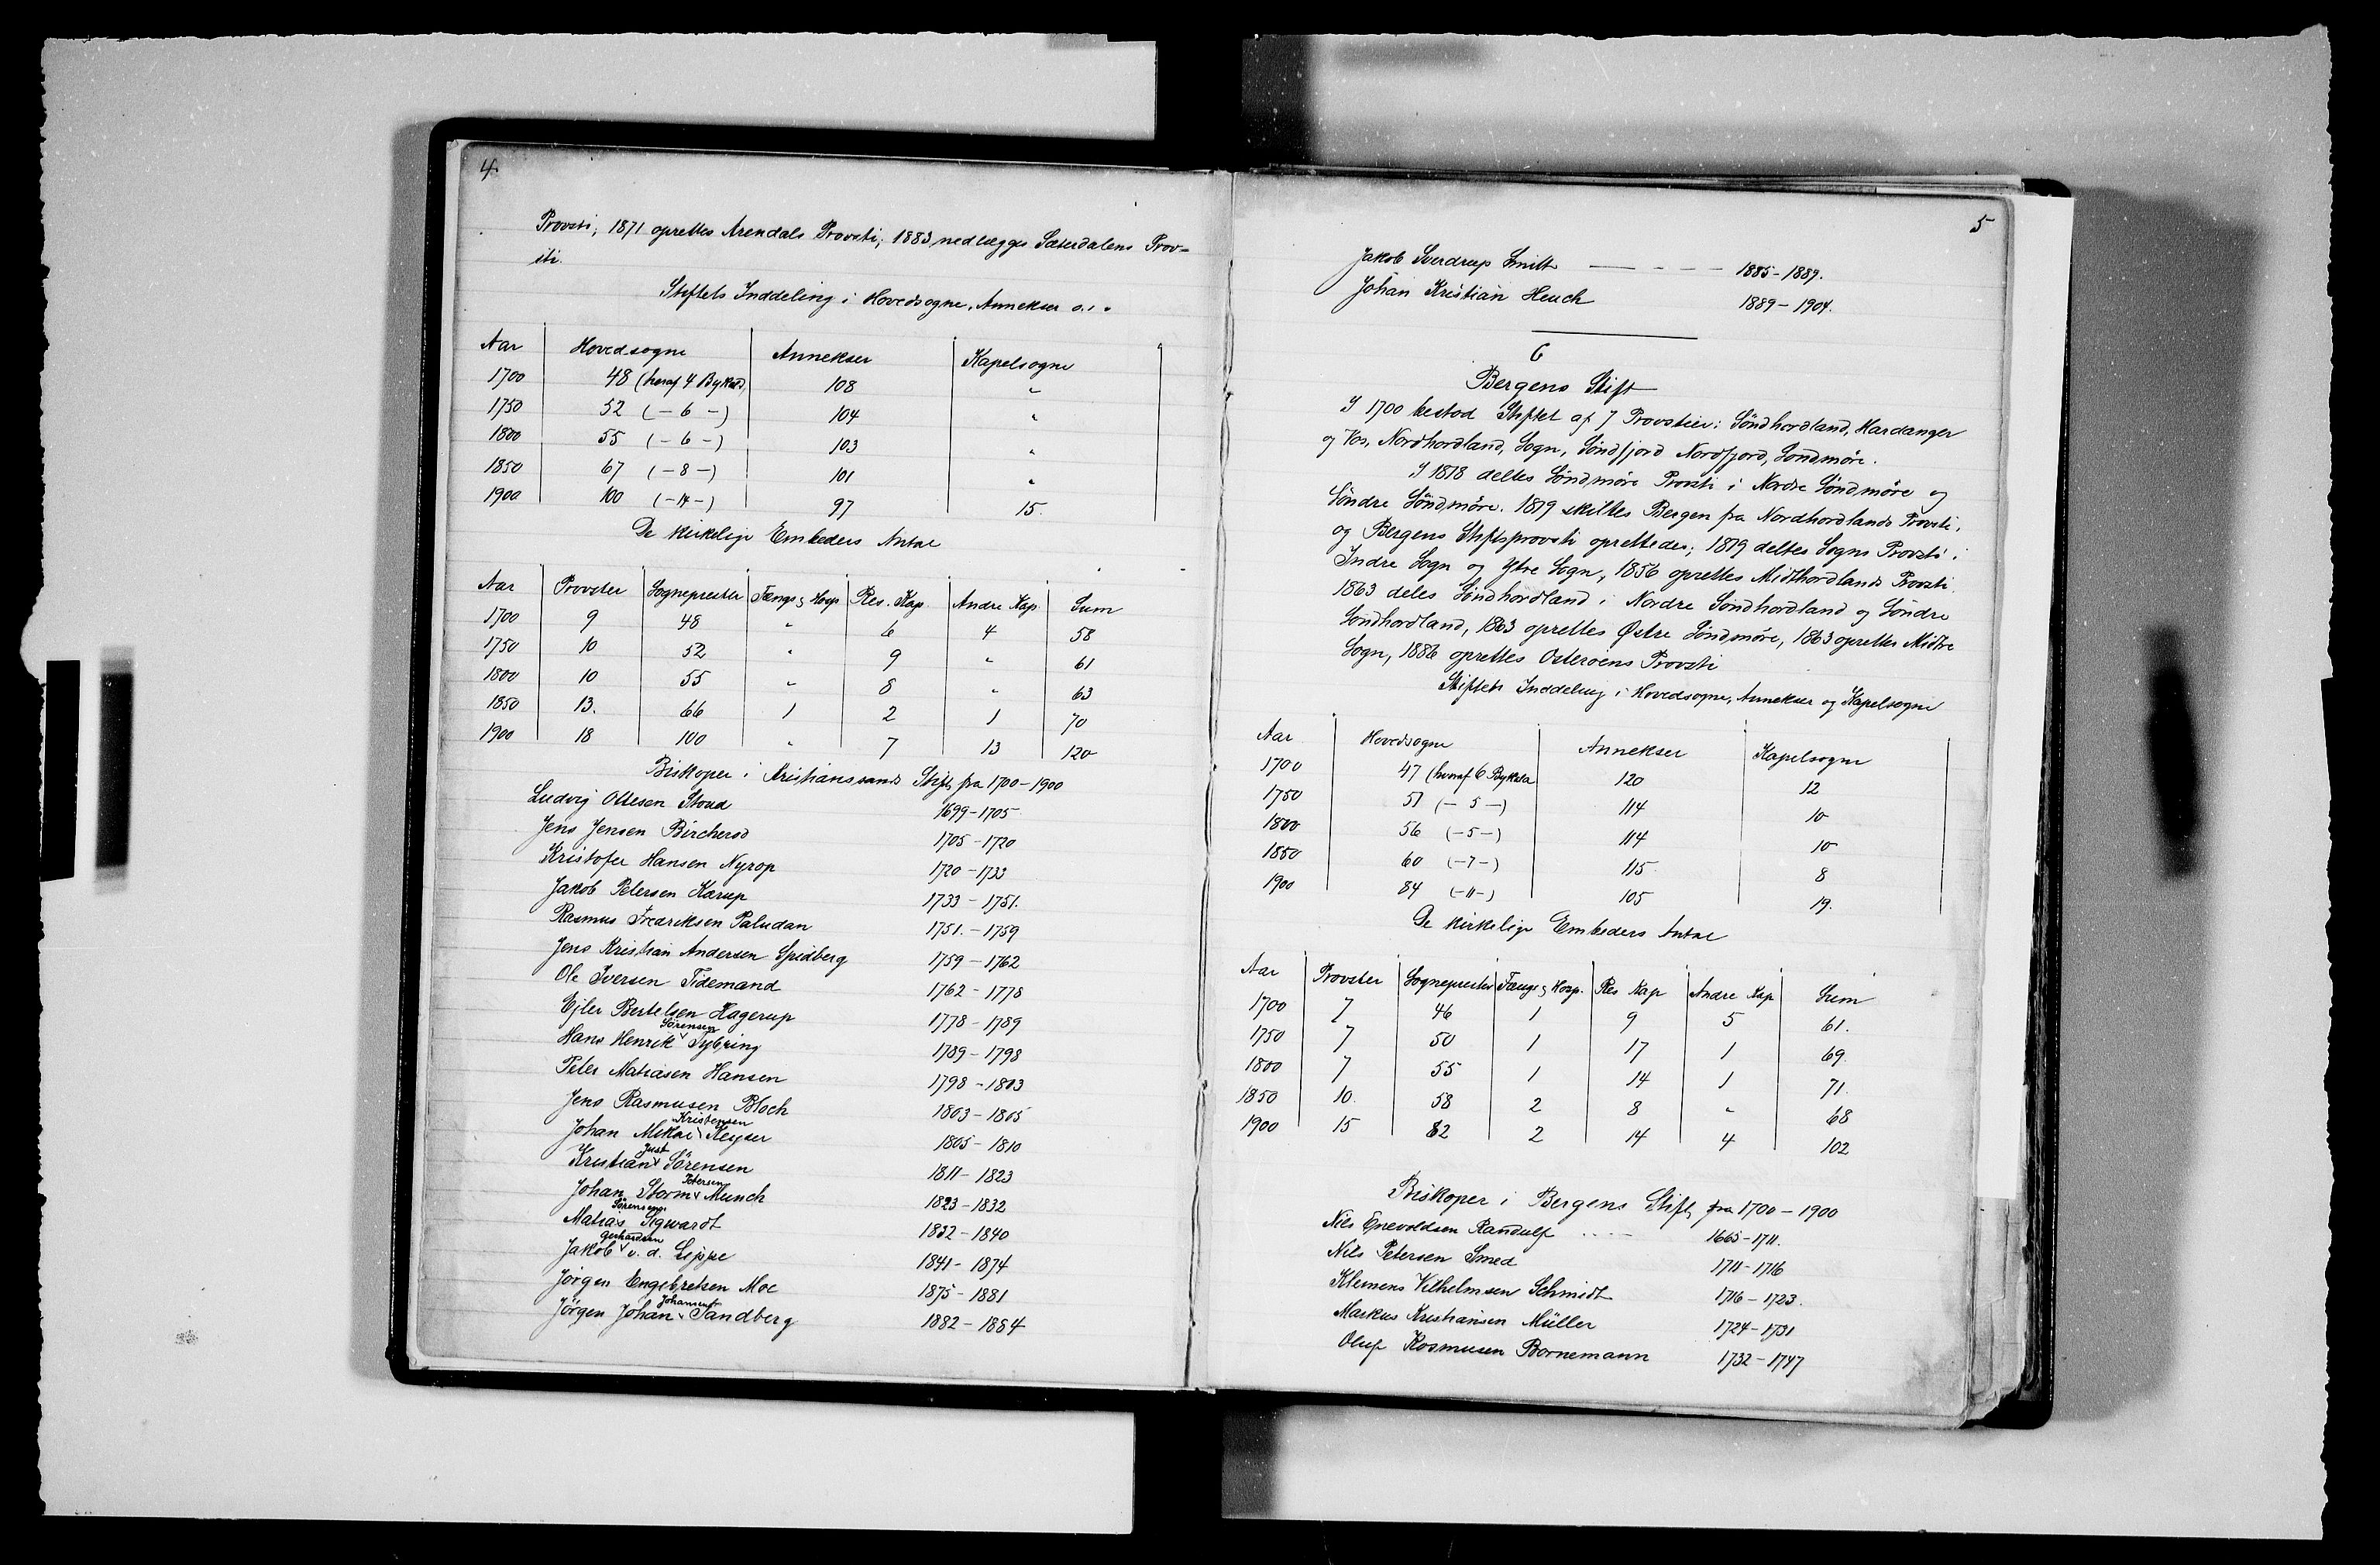 4.
Provsti; 1871 oprettes Arendals Provsti; 1883 nedlægges Sæterdalens Prov-
sti.
Stiftets Inddeling i Hovedsogne, Annekser o.s.v.
Aar Hovedsogne Annekser Kapelsogne
1700 48 (heraf 4 Bykald) 108 "
1750 52 (- 6 -) 104 "
1800 55 (- 6 -) 103 "
1850 67 (- 8 -) 101 "
1900 100 (- 14 -) 97 15.
De kirkelige Embeders Antal
Aar Provster Sogneprester Fængs. & Hosp Res. Kap. Andre Kap. Sum
1700 9 48 " 6 4 58
1750 10 52 " 9 " 61
1800 10 55 " 8 " 63
1850 13. 66 1 2 1 70
1900 18 100 " 7 13 120
Biskoper i Kristianssands Stift fra 1700-1900
Ludvig Ottesen Stoud 1699-1705
Jens Jensen Bircherod 1705-1720
Kristofer Hansen Nyrop 1720-1733
Jakob Petersen Kærup 1733-1751.
Rasmus Fredriksen Paludan 1751.-1759
Jens Kristian Andersen Spidberg 1759-1762
Ole Iversen Tidemand 1762-1778
Ejler Bertelsen Hagerup 1778-1789
Hans Henrik Sörensen Tybring 1789-1798
Peter Matiasen Hansen 1798-1803
Jens Rasmusen Bloch 1803-1805
Johan Mikal Kristensen Keyser 1805-1810
Kristian Just Sörensen 1811-1823
Johan Storm Petersen Munch 1823-1832
Matias Sörensen Sigwardt 1832-1840
Jakob Gerhardsen v. d. Lippe 1841-1874
Jörgen Engebretsen Moe 1875-1881
Jörgen Johan Johansen Tandberg 1882-1884
5
Jakob Sverdrup Smitt 1885-1889.
Johan Kristian Heuch 1889-1904.
6
Bergens Stift
I 1700 bestod Stiftet af 7 Provstier: Söndhordland, Hardanger
og Vos, Nordhordland, Sogn, Söndfjord Nordfjord, Söndmöre.
I 1818 deltes Söndmöre Provsti i Nordre Söndmöre og
Söndre Söndmöre. 1819 skiltes Bergen fra Nordhordlands Provsti,
og Bergens Stiftsprovsti oprettedes; 1819 deltes Sogns Provsti i
Indre Sogn og Ytre Sogn, 1856 oprettes Midthordlands Provsti
1863 deles Söndhordland i Nordre Söndhordland og Söndre
Söndhordland, 1863 oprettes Østre Söndmöre, 1863 oprettes Midtre
Sogn, 1886 oprettes Osteröens Provsti
Stiftets Inddeling i Hovedsogne, Annekser og Kapelsogne
Aar Hovedsogne Annekser Kapelsogne
1700 47 (hvoraf 6 Bykald 120 12
1750 51 (- 5 -) 114 10
1800 56 (- 5 -) 114 10
1850 60 (- 7 -) 115. 8
1900 84 (- 11 -) 105 19.
De kirkelige Embeders Antal
Aar Provster Sogneprester Fængs. & Hosp. Res Kap Andre Kap Sum
1700 7 46 1 9 5 61.
1750 7 50 1 17 1 69.
1800 7 55 1 14 1 71.
1850 10. 58 2 8 " 68
1900 15 82 2 14 4 102
Biskoper i Bergens Stift fra 1700-1900
Nils Enevoldsen Randulf 1665-1711.
Nils Petersen Smed 1711-1716
Klemens Vilhelmsen Schmidt 1716-1723.
Markus Kristiansen Müller 1724-1731
Oluf Rosmusen Bornemann 1732-1747